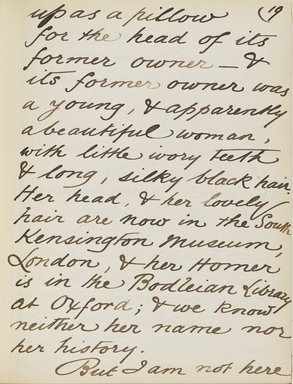 up as a pillow (19
for the head of its
former owner — &
its former owner was
a young, & apparently
a beautiful woman,
with little ivory teeth
& long, silky black hair.
Her head, & her lovely
hair are now in the South
Kensington Museum,
London, & her Homer
is in the Bodleian Library
at Oxford; & we know
neither her name nor
her history.
But I am not here